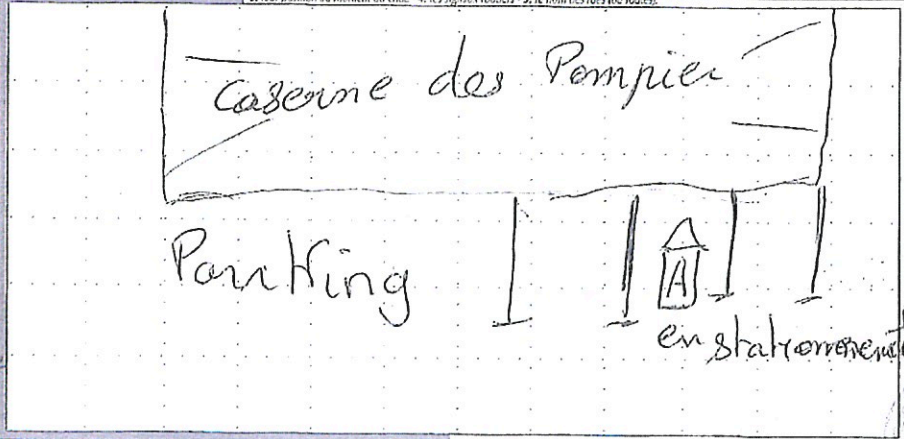 Caserne des Pompier
Parking
A
en stationnement